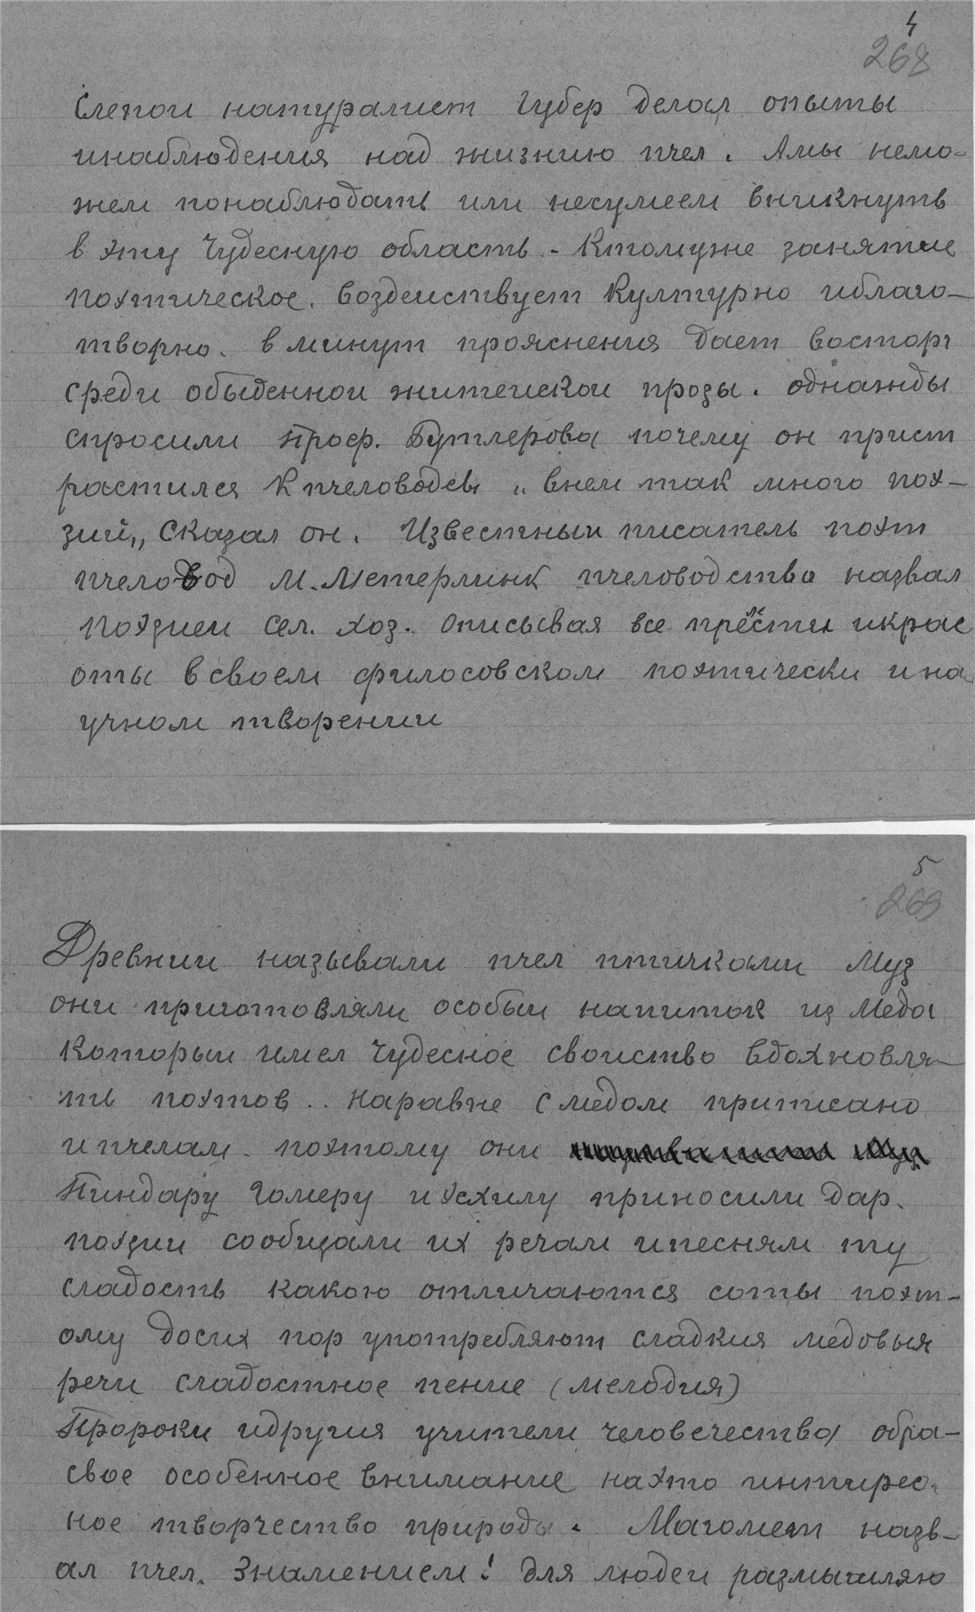 4
268
Слепои натуралист Губер делал опыты
инаблюдения над жизнию пчел. Амы немо-
жем понаблюдать или несумеем вникнуть
в эту Чудесную область - Ктомуже занятие
поэтическое. воздеиствует Културно иблаго-
творно. в минут прояснения дает восторг
среди обыденнои житеискои прозы. однажды
спросили Проф. Бутлерова почему он прист
растился К пчеловодсы „ внем так много поэ-
зии„ Сказал он. Известныи писатель поэт
пчеловод М. Метерлинк пчеловодства назвал
поэзиеи Сел. хоз. описывая все икрас
оты всвоем философском поэтически ина
учном творении
5
269
Древнии называли пчел птичками Муз
они приготовляли особыи напиток из Меда
Которыи имел Чудесное своиство вдохновля-
ть поэтов.. наравне с медом приписано
ипчелам. поэтому они
Пиндару Гомеру иэсхилу приносили дар.
поэзии сообщали их речам ипесням ту
сладость какою отличаются соты поэт-
ому досих пор употребляют сладкия медовыя
речи сладостное пение (мелодия)
Пророки идругия учители человечества обра-
свое особенное внимание наэто интирес-
ное творчество природы. Магомет назв-
ал пчел. Знамением! для людеи размышляю